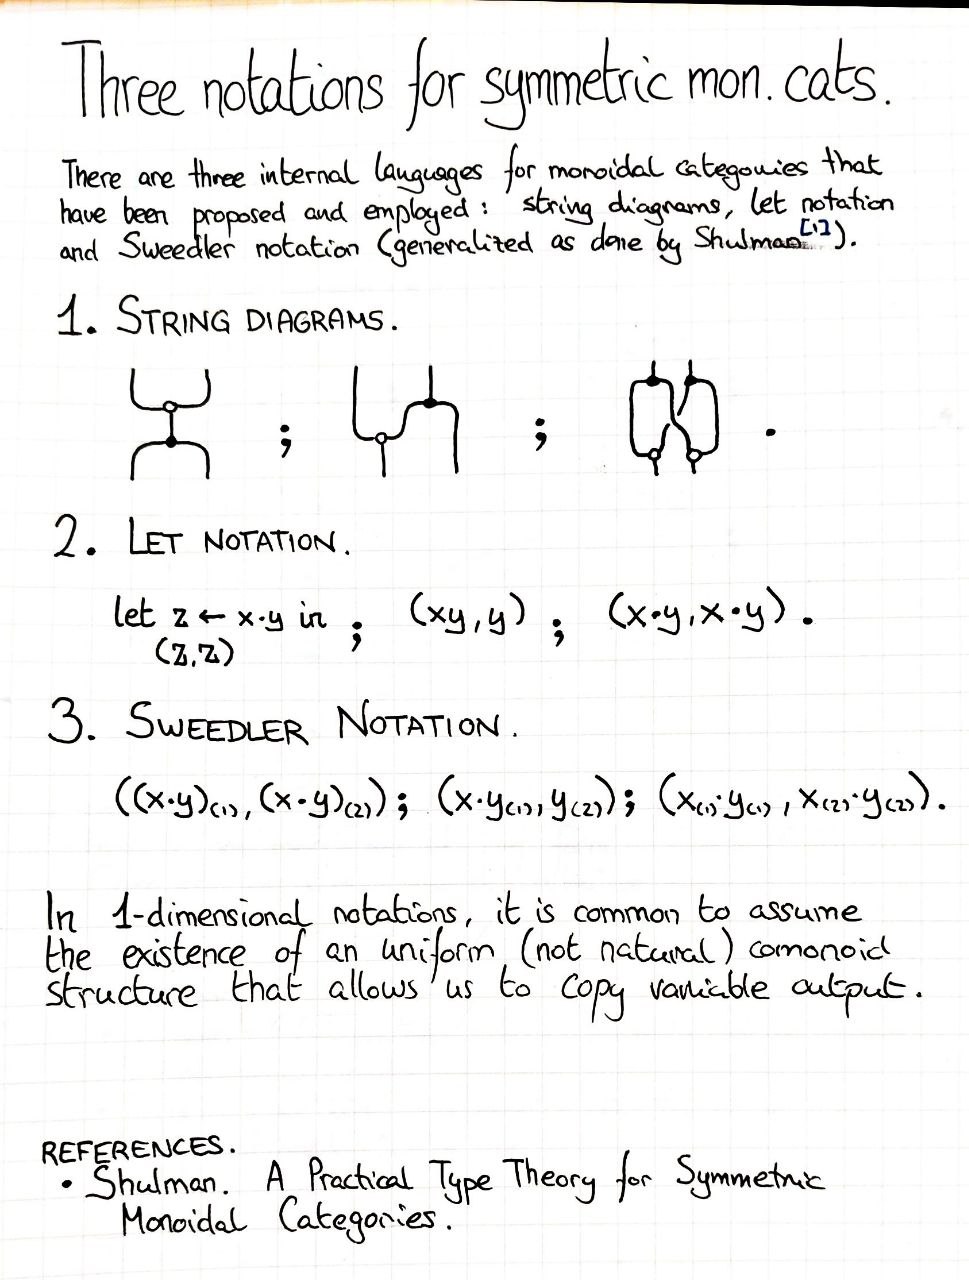 Three notations for symmetric mon. cats.
There are three internal languages for monoidal categories that
have been proposed and employed: string diagrams, let notation
and Sweedler notation (generalized as done by Shulman[1]).
1. STRING DIAGRAMS.
; ; .
2. LET NOTATION.
let z ← x·y in ; (xy, y) ; (x·y, x·y).
(z,z)
3. SWEEDLER NOTATION.
((x·y)₍₁₎, (x·y)₍₂₎); (x·y₍₁₎, y₍₂₎); (x₍₁₎·y₍₁₎, x₍₂₎·y₍₂₎).
In 1-dimensional notations, it is common to assume
the existence of an uniform (not natural) comonoid
structure that allows us to copy variable output.
REFERENCES.
• Shulman. A Practical Type Theory for Symmetric
Monoidal Categories.